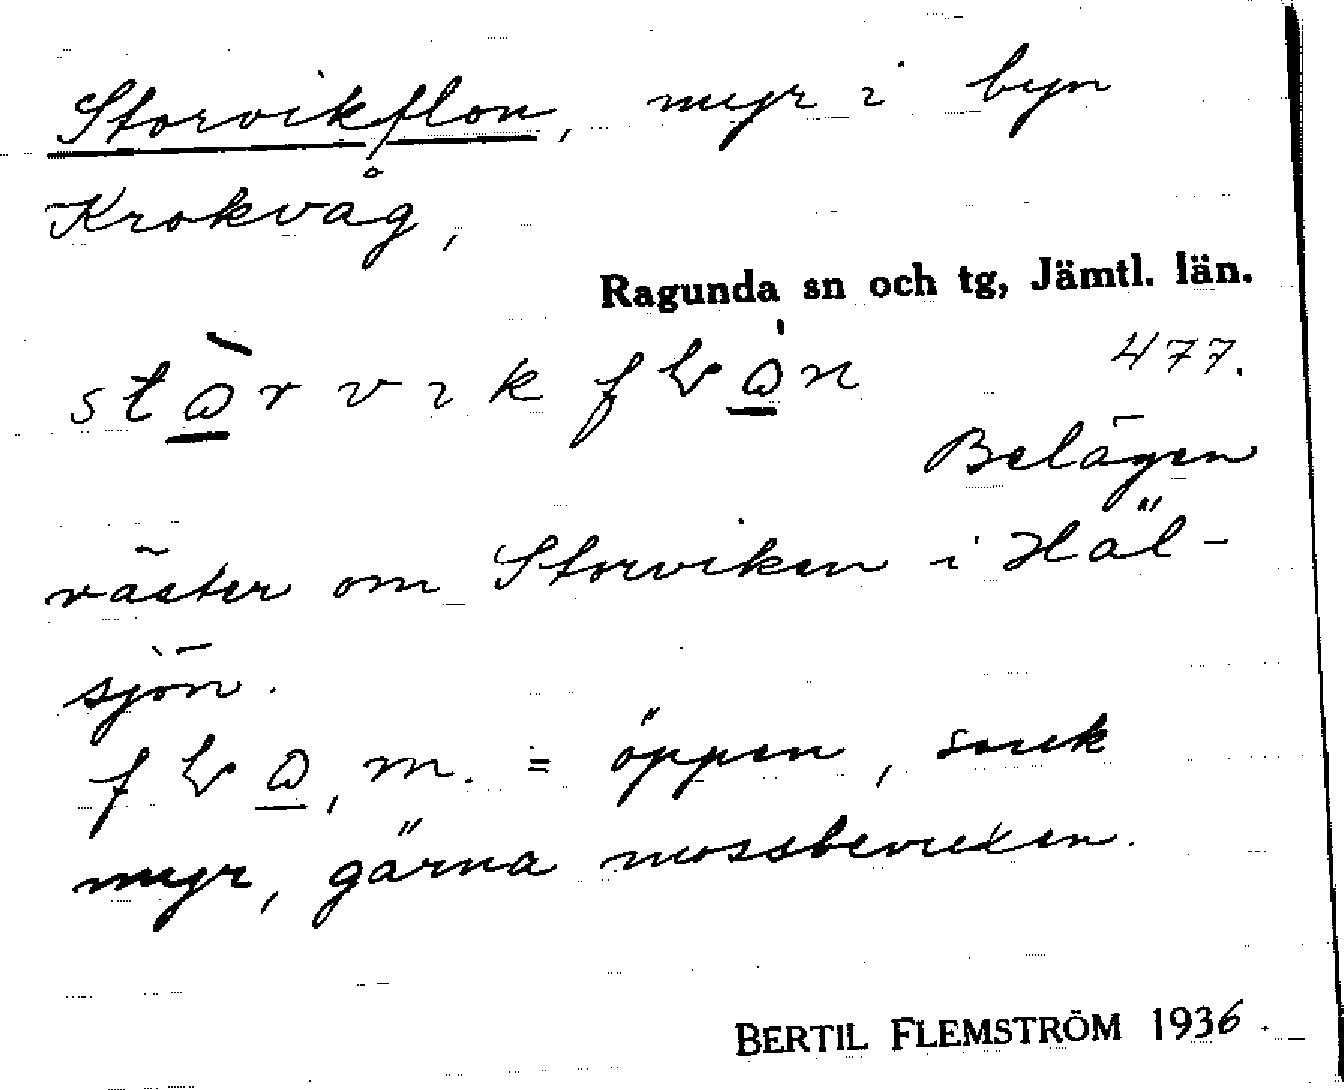 Storvikflon, myr i byn
Krokvåg,
Ragunda sn och tg, Jämtl. län.
477.
Belägen
väster om Storviken i Häl-
sjön.
m. = öppen, snuk
myr, gärna mossbevuxen.
BERTIL FLEMSTRÖM 1936.